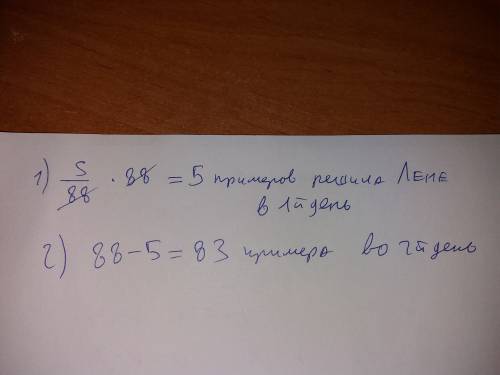 1) 5/88 · 88 = 5 примеров решила Лене
в 1й день
2) 88 - 5 = 83 примера во 2й день